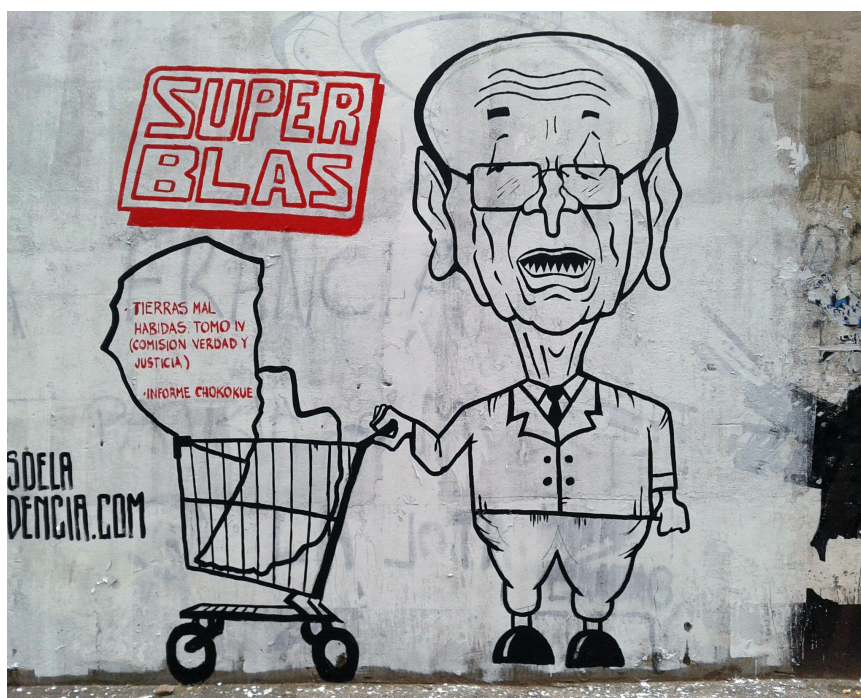 SUPER
BLAS
· TIERRAS MAL
HABIDAS. TOMO IV
(COMISION VERDAD Y
JUSTICIA)
· INFORME CHOKOKUE
SDELA
DENCIA.COM